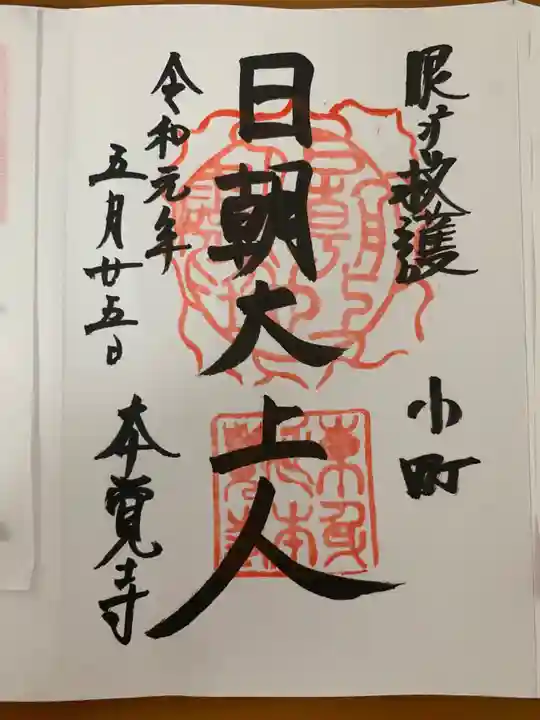 眼才救護
小町
日朝大上人
令和元年
五月廿五日
本覚寺